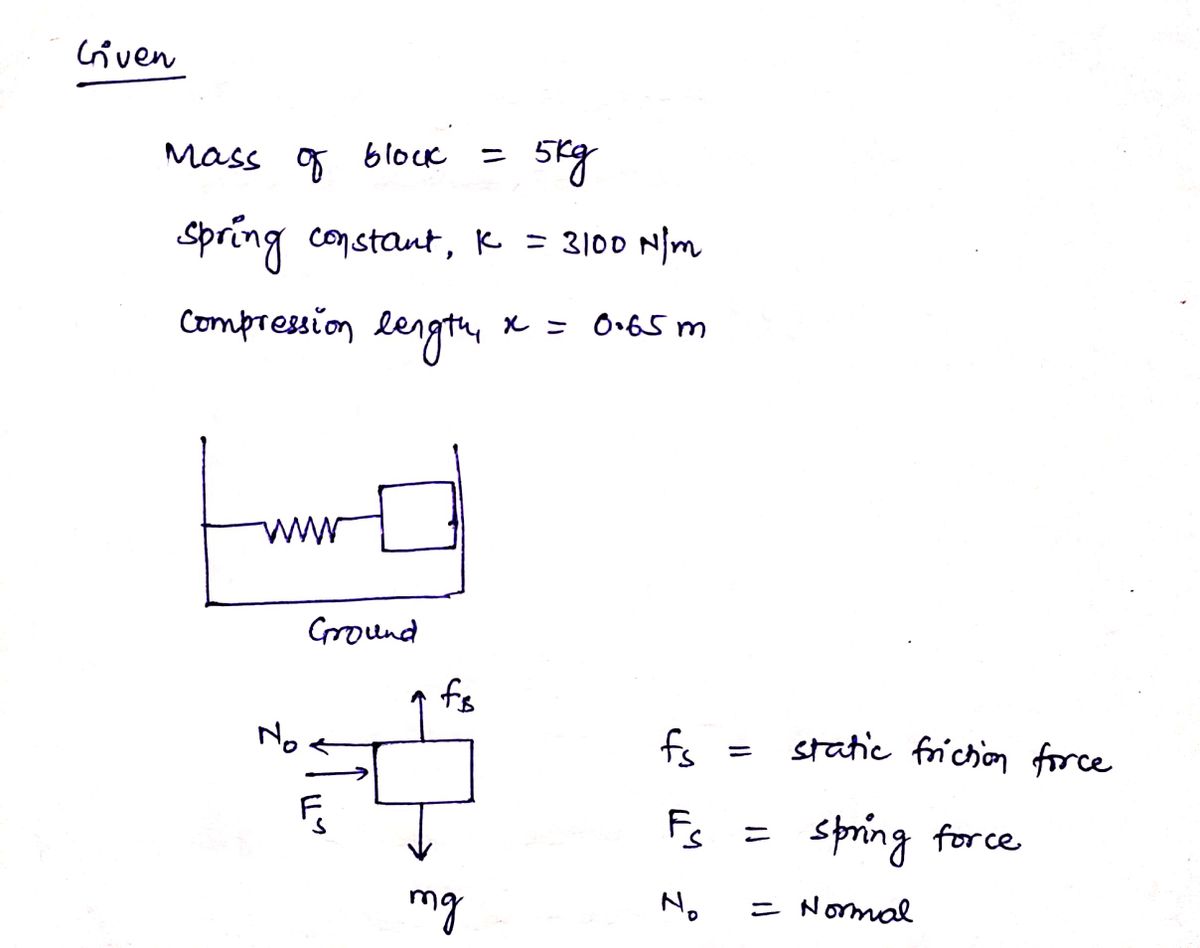 Given
Mass of block = 5kg
Spring constant, K = 3100 N/m
Compression length, x = 0.65 m
Ground
fs
No
Fs
mg
fs = static friction force
Fs = spring force
No = Normal